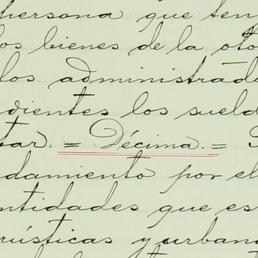 persona que ten
los bienes de la oto
los administrade
dientes los sueld
tar. = Décima. =
damiento por el
ntidades que es
rústicas y urban